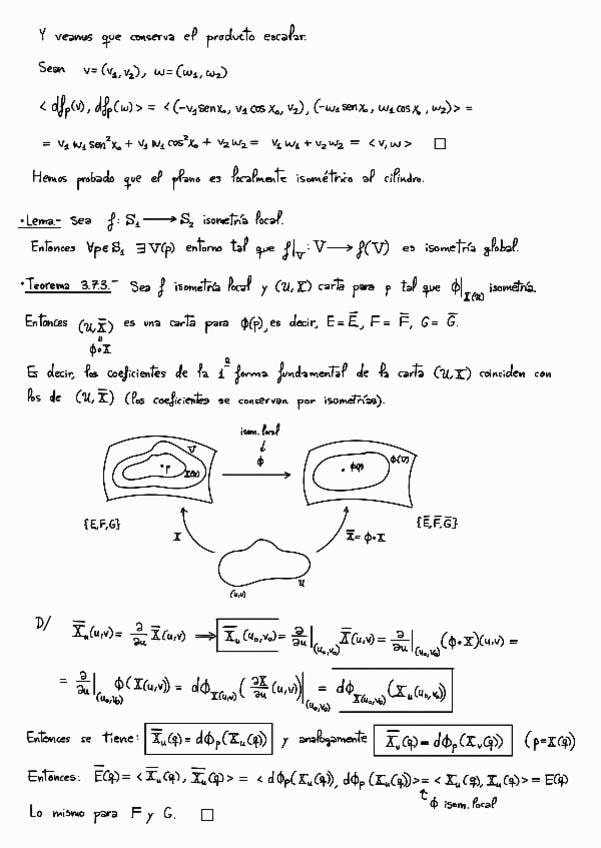 Y veamos que conserva el producto escalar.
Sean v=(v₁,v₂), ω=(ω₁,ω₂)
<dfₚ(v), dfₚ(ω)> = <(-v₁ sen x₀, v₁ cos x₀, v₂), (-ω₁ sen x₀, ω₁ cos x₀, ω₂)> =
= v₁ω₁ sen²x₀ + v₁ω₁ cos²x₀ + v₂ω₂ = v₁ω₁ + v₂ω₂ = <v,ω> □
Hemos probado que el plano es localmente isométrico al cilindro.
·Lema.- Sea f: S₁ ⟶ S₂ isometría local.
Entonces ∀p∈S₁ ∃V(p) entorno tal que f|_V : V ⟶ f(V) es isometría global.
·Teorema 3.7.3.- Sea f isometría local y (U,X) carta para p tal que ϕ|_X(U) isometría.
Entonces (U,X̅) es una carta para ϕ(p), es decir, E=E̅, F=F̅, G=G̅.
ϕ∘X
Es decir, los coeficientes de la 1ª forma fundamental de la carta (U,X) coinciden con
los de (U,X̅) (los coeficientes se conservan por isometrías).
isom. local
ϕ
V
p
X(U)
ϕ(p)
ϕ(V)
{E,F,G}
{E̅,F̅,G̅}
X
X̅=ϕ∘X
(u,v)
U
D/ X̅ᵤ(u,v) = ∂/∂u X̅(u,v) ⟹ X̅ᵤ(u₀,v₀) = ∂/∂u|_(u₀,v₀) X̅(u,v) = ∂/∂u|_(u₀,v₀) (ϕ∘X)(u,v) =
= ∂/∂u|_(u₀,v₀) ϕ(X(u,v)) = dϕ_X(u,v) (∂X/∂u (u,v))|_(u₀,v₀) = dϕ_X(u₀,v₀) (Xᵤ(u₀,v₀))
Entonces se tiene: X̅ᵤ(q) = dϕₚ(Xᵤ(q)) y analogamente X̅ᵥ(q) = dϕₚ(Xᵥ(q)) (p=X(q))
Entonces: E̅(q) = <X̅ᵤ(q), X̅ᵤ(q)> = <dϕₚ(Xᵤ(q)), dϕₚ(Xᵤ(q))> = <Xᵤ(q), Xᵤ(q)> = E(q)
↑ ϕ isom. local
Lo mismo para F y G. □